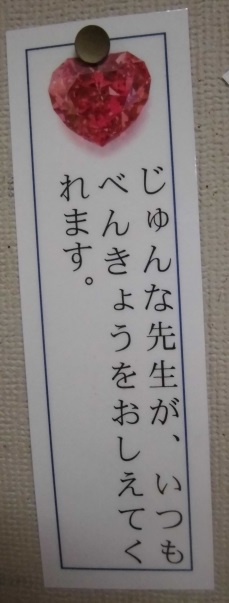 じゅんな先生が、いつも
べんきょうをおしえてく
れます。